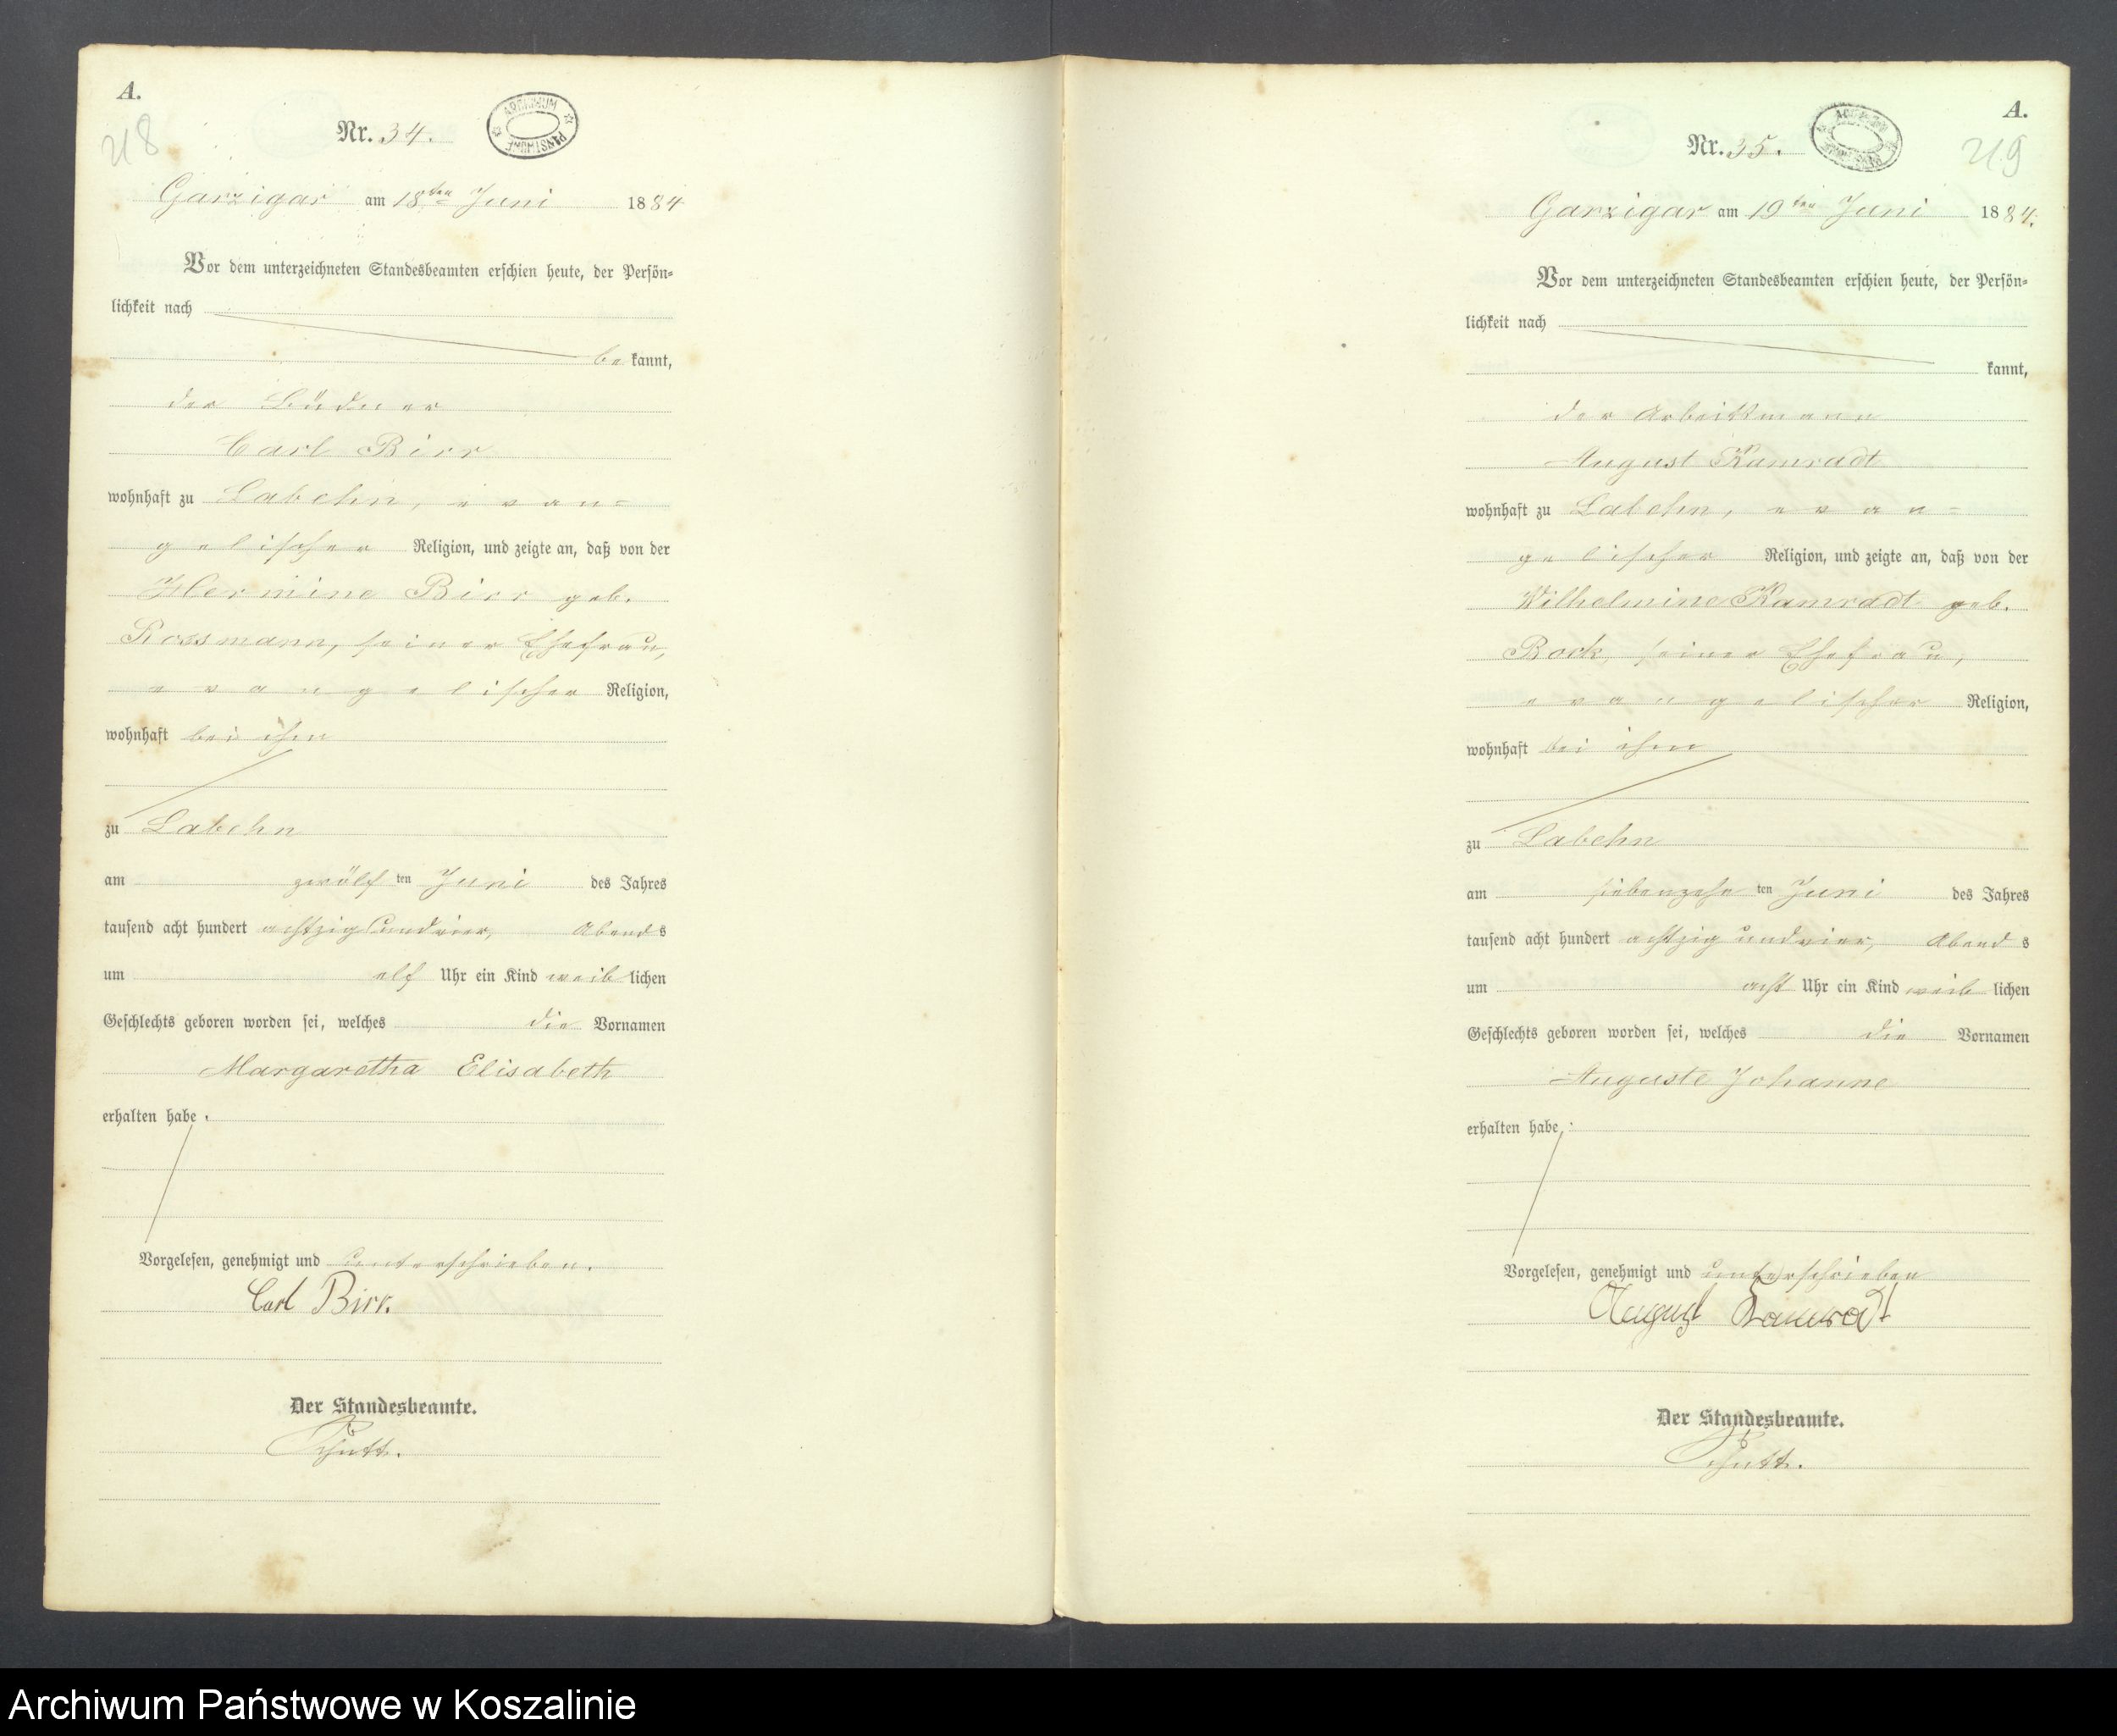 A.
218
Nr. 34.
ARCHIWUM PAŃSTWOWE
Garzigar am 18ten Juni 1884
Vor dem unterzeichneten Standesbeamten erschien heute, der Persön-
lichkeit nach
bekannt,
der Büdner
Carl Birr
wohnhaft zu Labehn, evan-
gelischer Religion, und zeigte an, daß von der
Hermine Birr geb.
Rossmann, seiner Ehefrau,
evangelischer Religion,
wohnhaft bei ihm
zu Labehn
am zwölften Juni des Jahres
tausend acht hundert achtzig und vier, Abends
um elf Uhr ein Kind weiblichen
Geschlechts geboren worden sei, welches die Vornamen
Margaretha Elisabeth
erhalten habe.
Vorgelesen, genehmigt und unterschrieben.
Carl Birr.
Der Standesbeamte.
Schutt.
A.
219
Nr. 35.
Garzigar am 19ten Juni 1884.
Vor dem unterzeichneten Standesbeamten erschien heute, der Persön-
lichkeit nach
kannt,
der Arbeitsmann
August Kamradt
wohnhaft zu Labehn, evan-
gelischer Religion, und zeigte an, daß von der
Wilhelmine Kamradt geb.
Bock, seiner Ehefrau,
evangelischer Religion,
wohnhaft bei ihm
zu Labehn
am siebenzehnten Juni des Jahres
tausend acht hundert achtzig und vier, Abends
um acht Uhr ein Kind weiblichen
Geschlechts geboren worden sei, welches die Vornamen
Auguste Johanne
erhalten habe.
Vorgelesen, genehmigt und unterschrieben
August Kamradt
Der Standesbeamte.
Schutt.
Archiwum Państwowe w Koszalinie